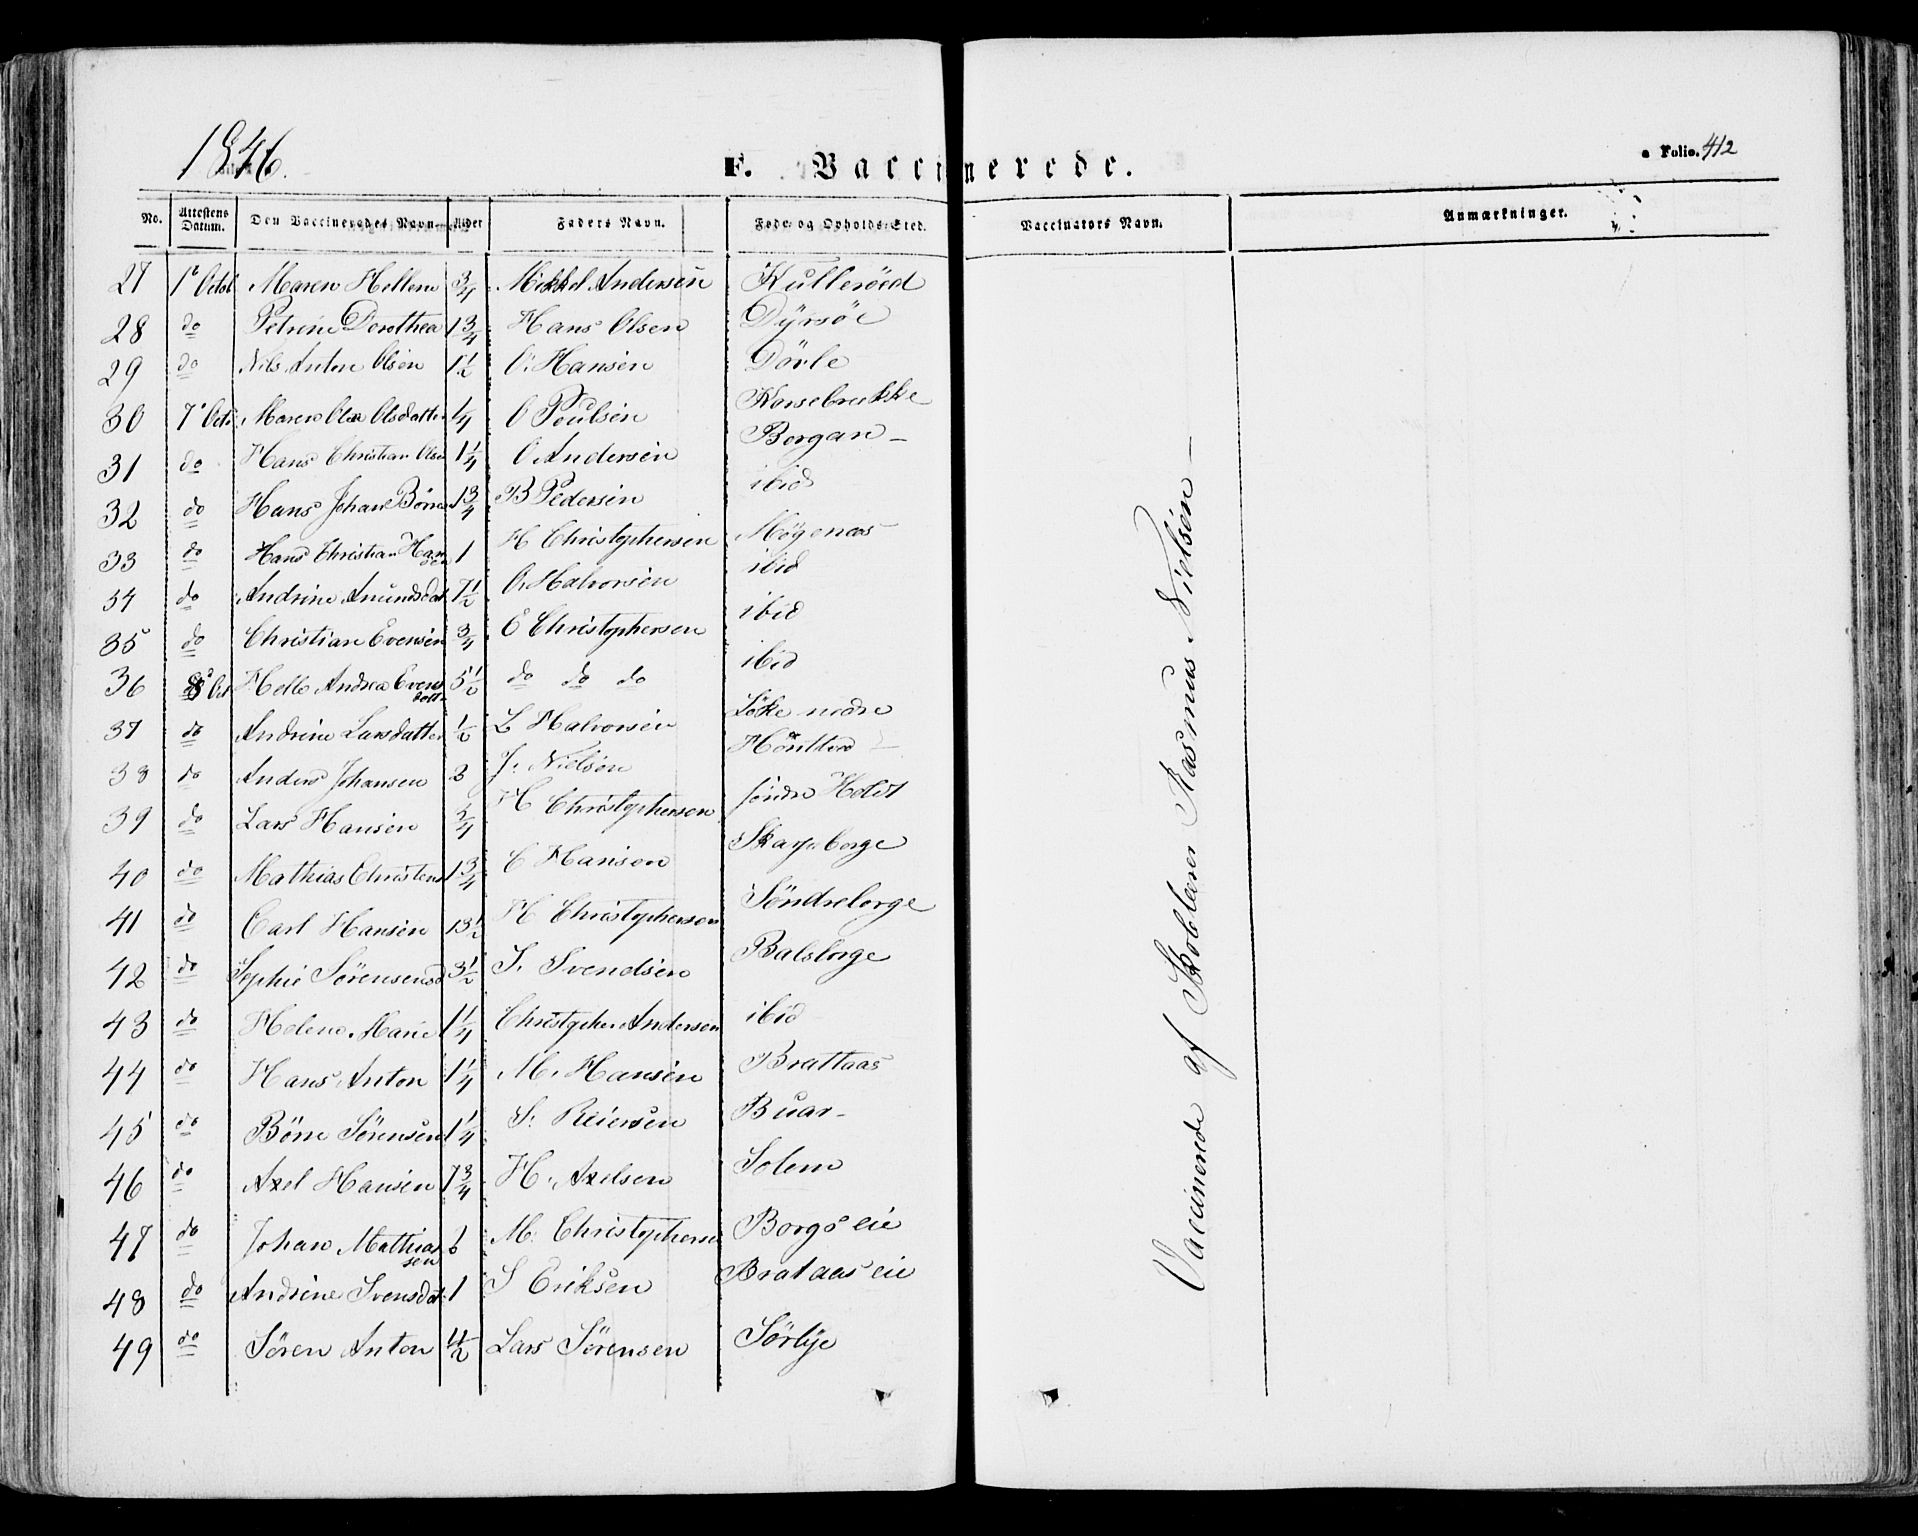 1846.
F. Vaccinerede.
Folio. 412
No. Attestens Datum. Den Vaccineredes Navn. Alder Faders Navn. Føde- og Opholds-Sted. Vaccinators Navn. Anmærkninger.
27 1e Octob Maren Hellene 3/4 Mikkel Andersen Kulleröed
28 do Petrine Dorothea 1 3/4 Hans Olsen Dyrsöe
29 do Nils Anton Olsen 1 1/2 O. Hansen Dörle
30 7e Oct Maren Olea Olsdatter 1/4 O Poulsen Korsebrekke
31 do Hans Christian Olsen 1 1/4 O Andersen Borgan –
32 do Hans Johan Börre 1 3/4 B Pedersen ibid
33 do Hans Christian Hansen 1 H Christophersen Högenæs
34 do Andrine Amundsdat 7 1/2 A. Halvorsen ibid
35 do Christian Evensen 3/4 E Christophersen ibid
36 8e Oct Helle Andrea Evensdatt 5 1/2 do do do ibid
37 do Andrine Larsdatter 1/2 L Halvorsen Löke nedre
38 do Anders Johansen 3 J. Nielsen
39 do Lars Hansen 3/4 H Christophersen söndre Holdt
40 do Mathias Christens 1 3/4 C Hansen Skarpeborge
41 do Carl Hansen 13 1/2 H Christophersen Söndreborge
42 do Sophie Sörensensd 3 1/2 S. Svendsen Balsborge
43 do Helene Marie 1 1/4 Christopher Andersen ibid
44 do Hans Anton 1 1/4 M. Hansen Brattaas
45 do Börre Sörensen 1 1/4 S. Reiersen Buar –
46 do Axel Hansen 7 3/4 H. Axelsen Solem
47 do Johan Mathiassen 3 M. Christophersen Borgs eie
48 do Andrine Svensdat 1 S Eriksen Brataas eie
49 do Sören Anton 4/2 Lars Sörensen Sörbye
Vaccinerede af Skolelærer Rasmus Nielsen –